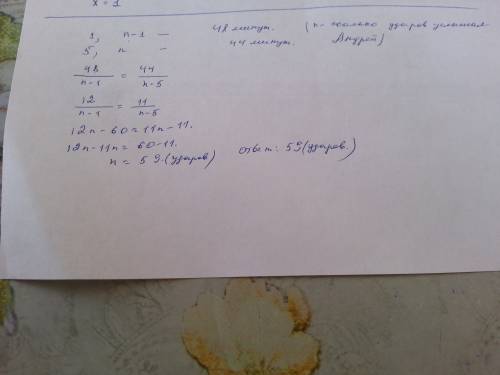 x = 1
1, n-1 — 48 минут. (n- сколько ударов услышал
5, n — 44 минут. Андрей)
48/n-1 = 44/n-5
12/n-1 = 11/n-5
12n-60=11n-11.
12n-11n= 60-11.
n= 59.(ударов) ответ: 59(ударов.)